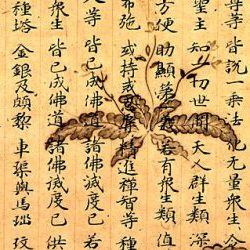 等 皆說一乘法 化無量衆生
聖主 知一切世間 天人群生類 深
方便 助顯第一義 若有衆生類 值
布施 或持戒忍辱 精進禪智等 種
等 皆已成佛道 諸佛滅度已 若
衆生 皆已成佛道 諸佛滅度已 供
種塔 金銀及頗黎 車𤦲與馬瑙 玟